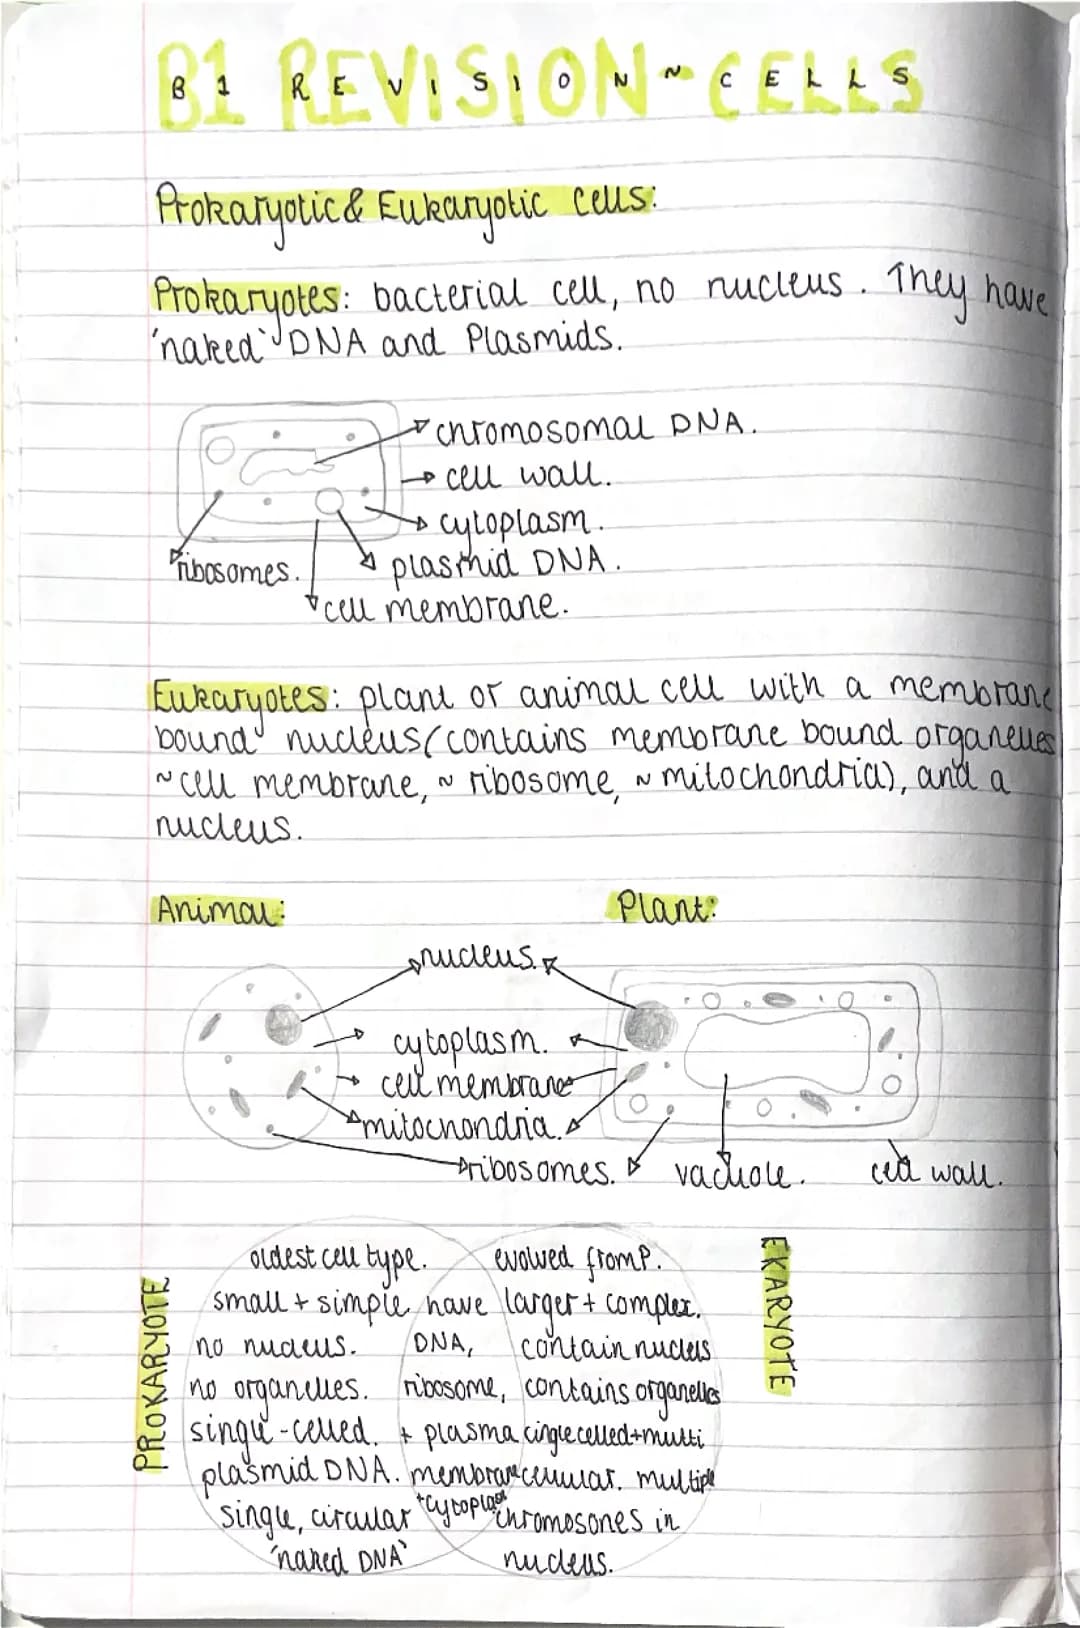 B1 REVISION ~ CELLS
Prokaryotic & Eukaryotic cells:
Prokaryotes: bacterial cell, no nucleus. They have
'naked' DNA and Plasmids.
chromosomal DNA.
cell wall.
cytoplasm.
ribosomes.
plasmid DNA.
cell membrane.
Eukaryotes: plant or animal cell with a membrane
bound nucleus (contains membrane bound organelles
~ cell membrane, ~ ribosome, ~ mitochondria), and a
nucleus.
Animal:
Plant:
nucleus.
cytoplasm.
cell membrane
mitochondria.
ribosomes.
vacuole.
cell wall.
PROKARYOTE
oldest cell type.
small + simple
no nucleus.
no organelles.
single-celled.
plasmid DNA.
single, circular
'naked DNA'
have
DNA,
ribosome,
+ plasma
membrane
+cytoplasm
evolved from P.
larger + complex.
contain nucleus
contains organelles
cingle celled + multi
cellular. multiple
chromosones in
nucleus.
EKARYOTE